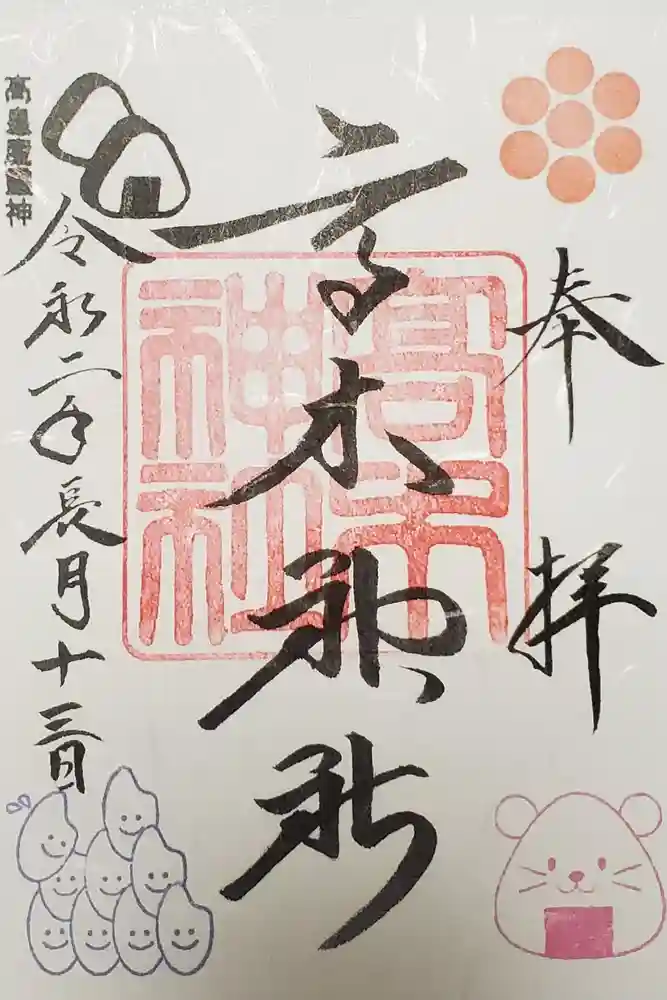 奉拝
高木神社
高木神社
令和二年長月十三日
高皇産靈神